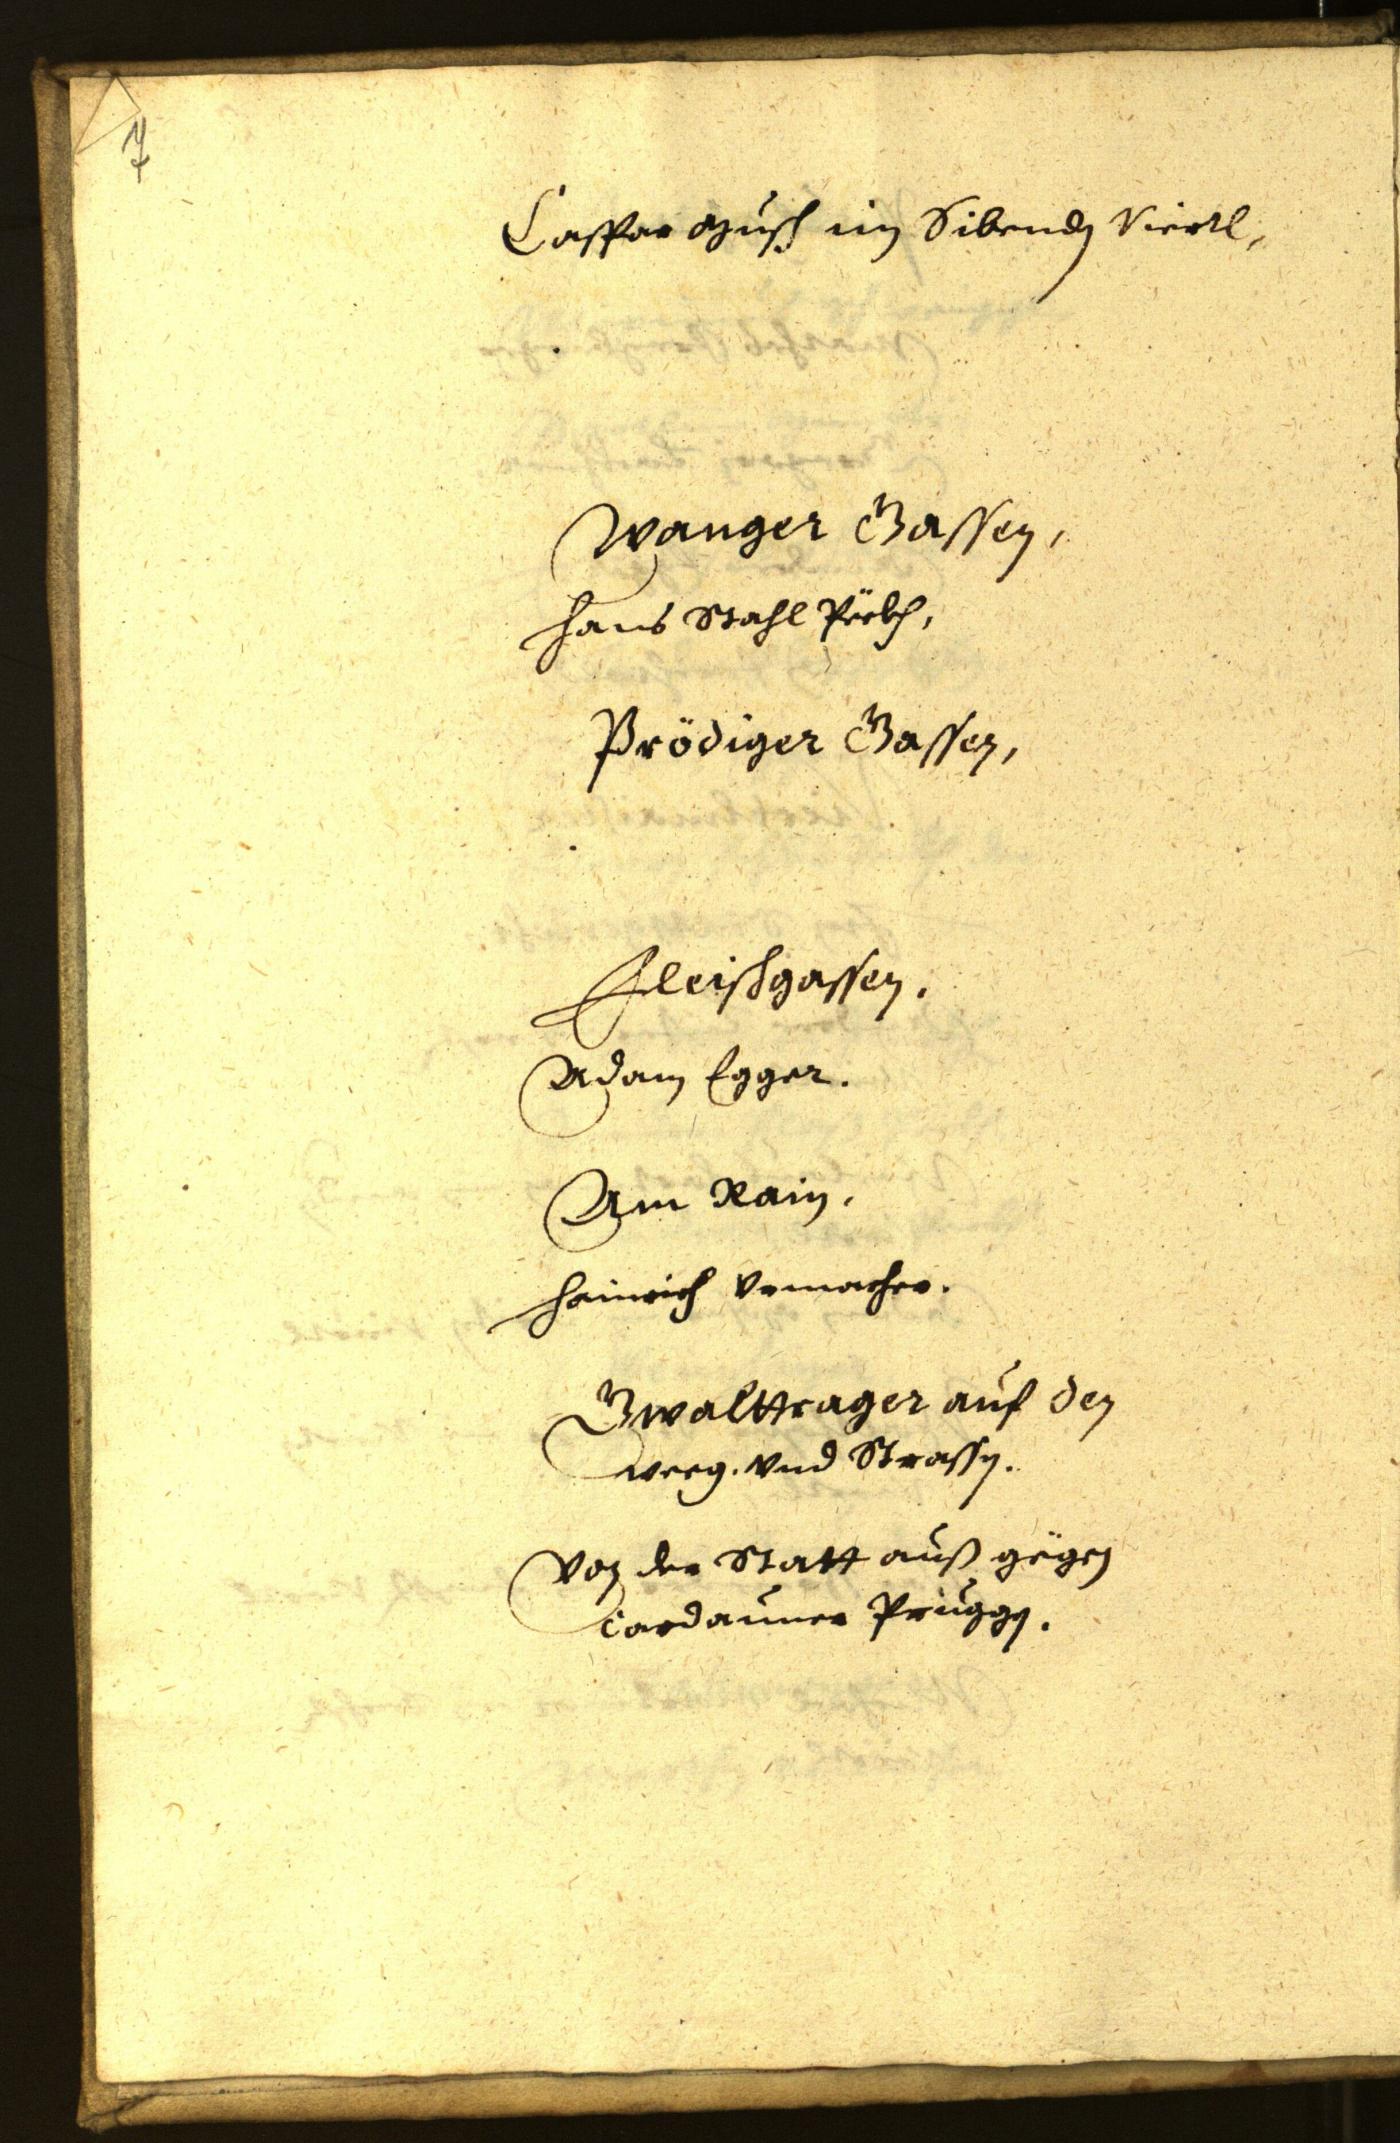 7
Caspar Musch im Sibenden Viertl,
Wanger Gassen,
Hans Stahl
Prödiger Gassen,
Fleischgassen.
Adam Egger.
Am Rain.
Hainrich Vrmacher.
Gwalttrager auf den
weeg. vnd Strassen.
Von der Statt auß gëgen
Cardauner Pruggen.